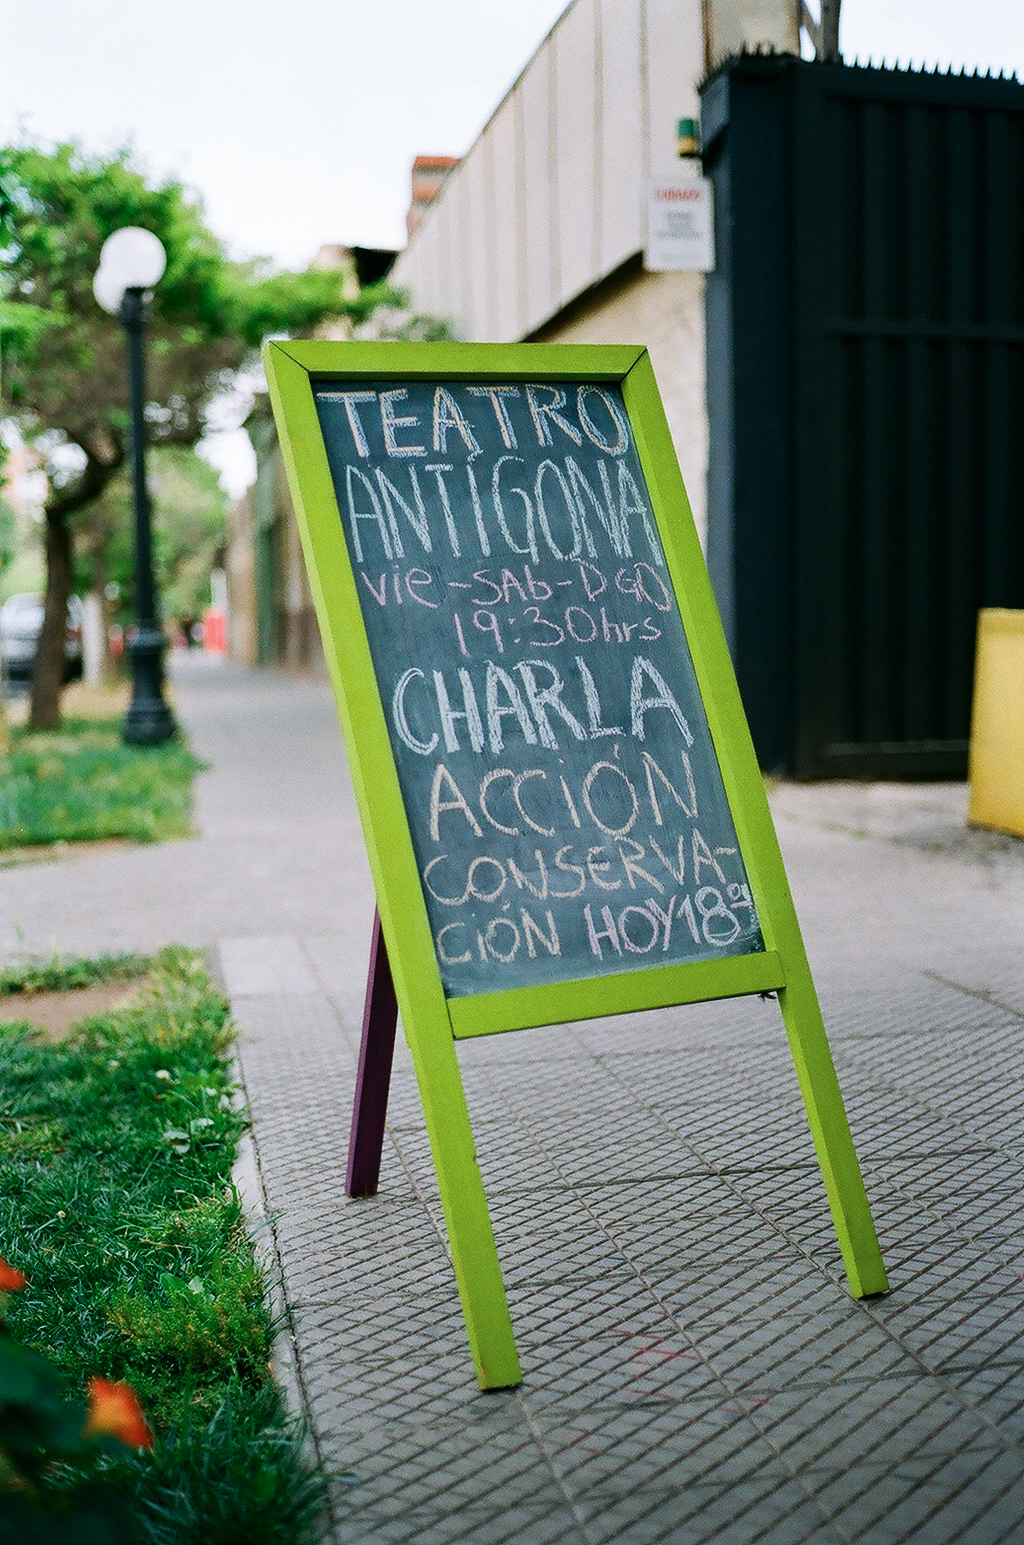 TEATRO
ANTÍGONA
vie-SAb-DGO
19:30hrs
CHARLA
ACCIÓN
CONSERVA-
CIÓN HOY 18